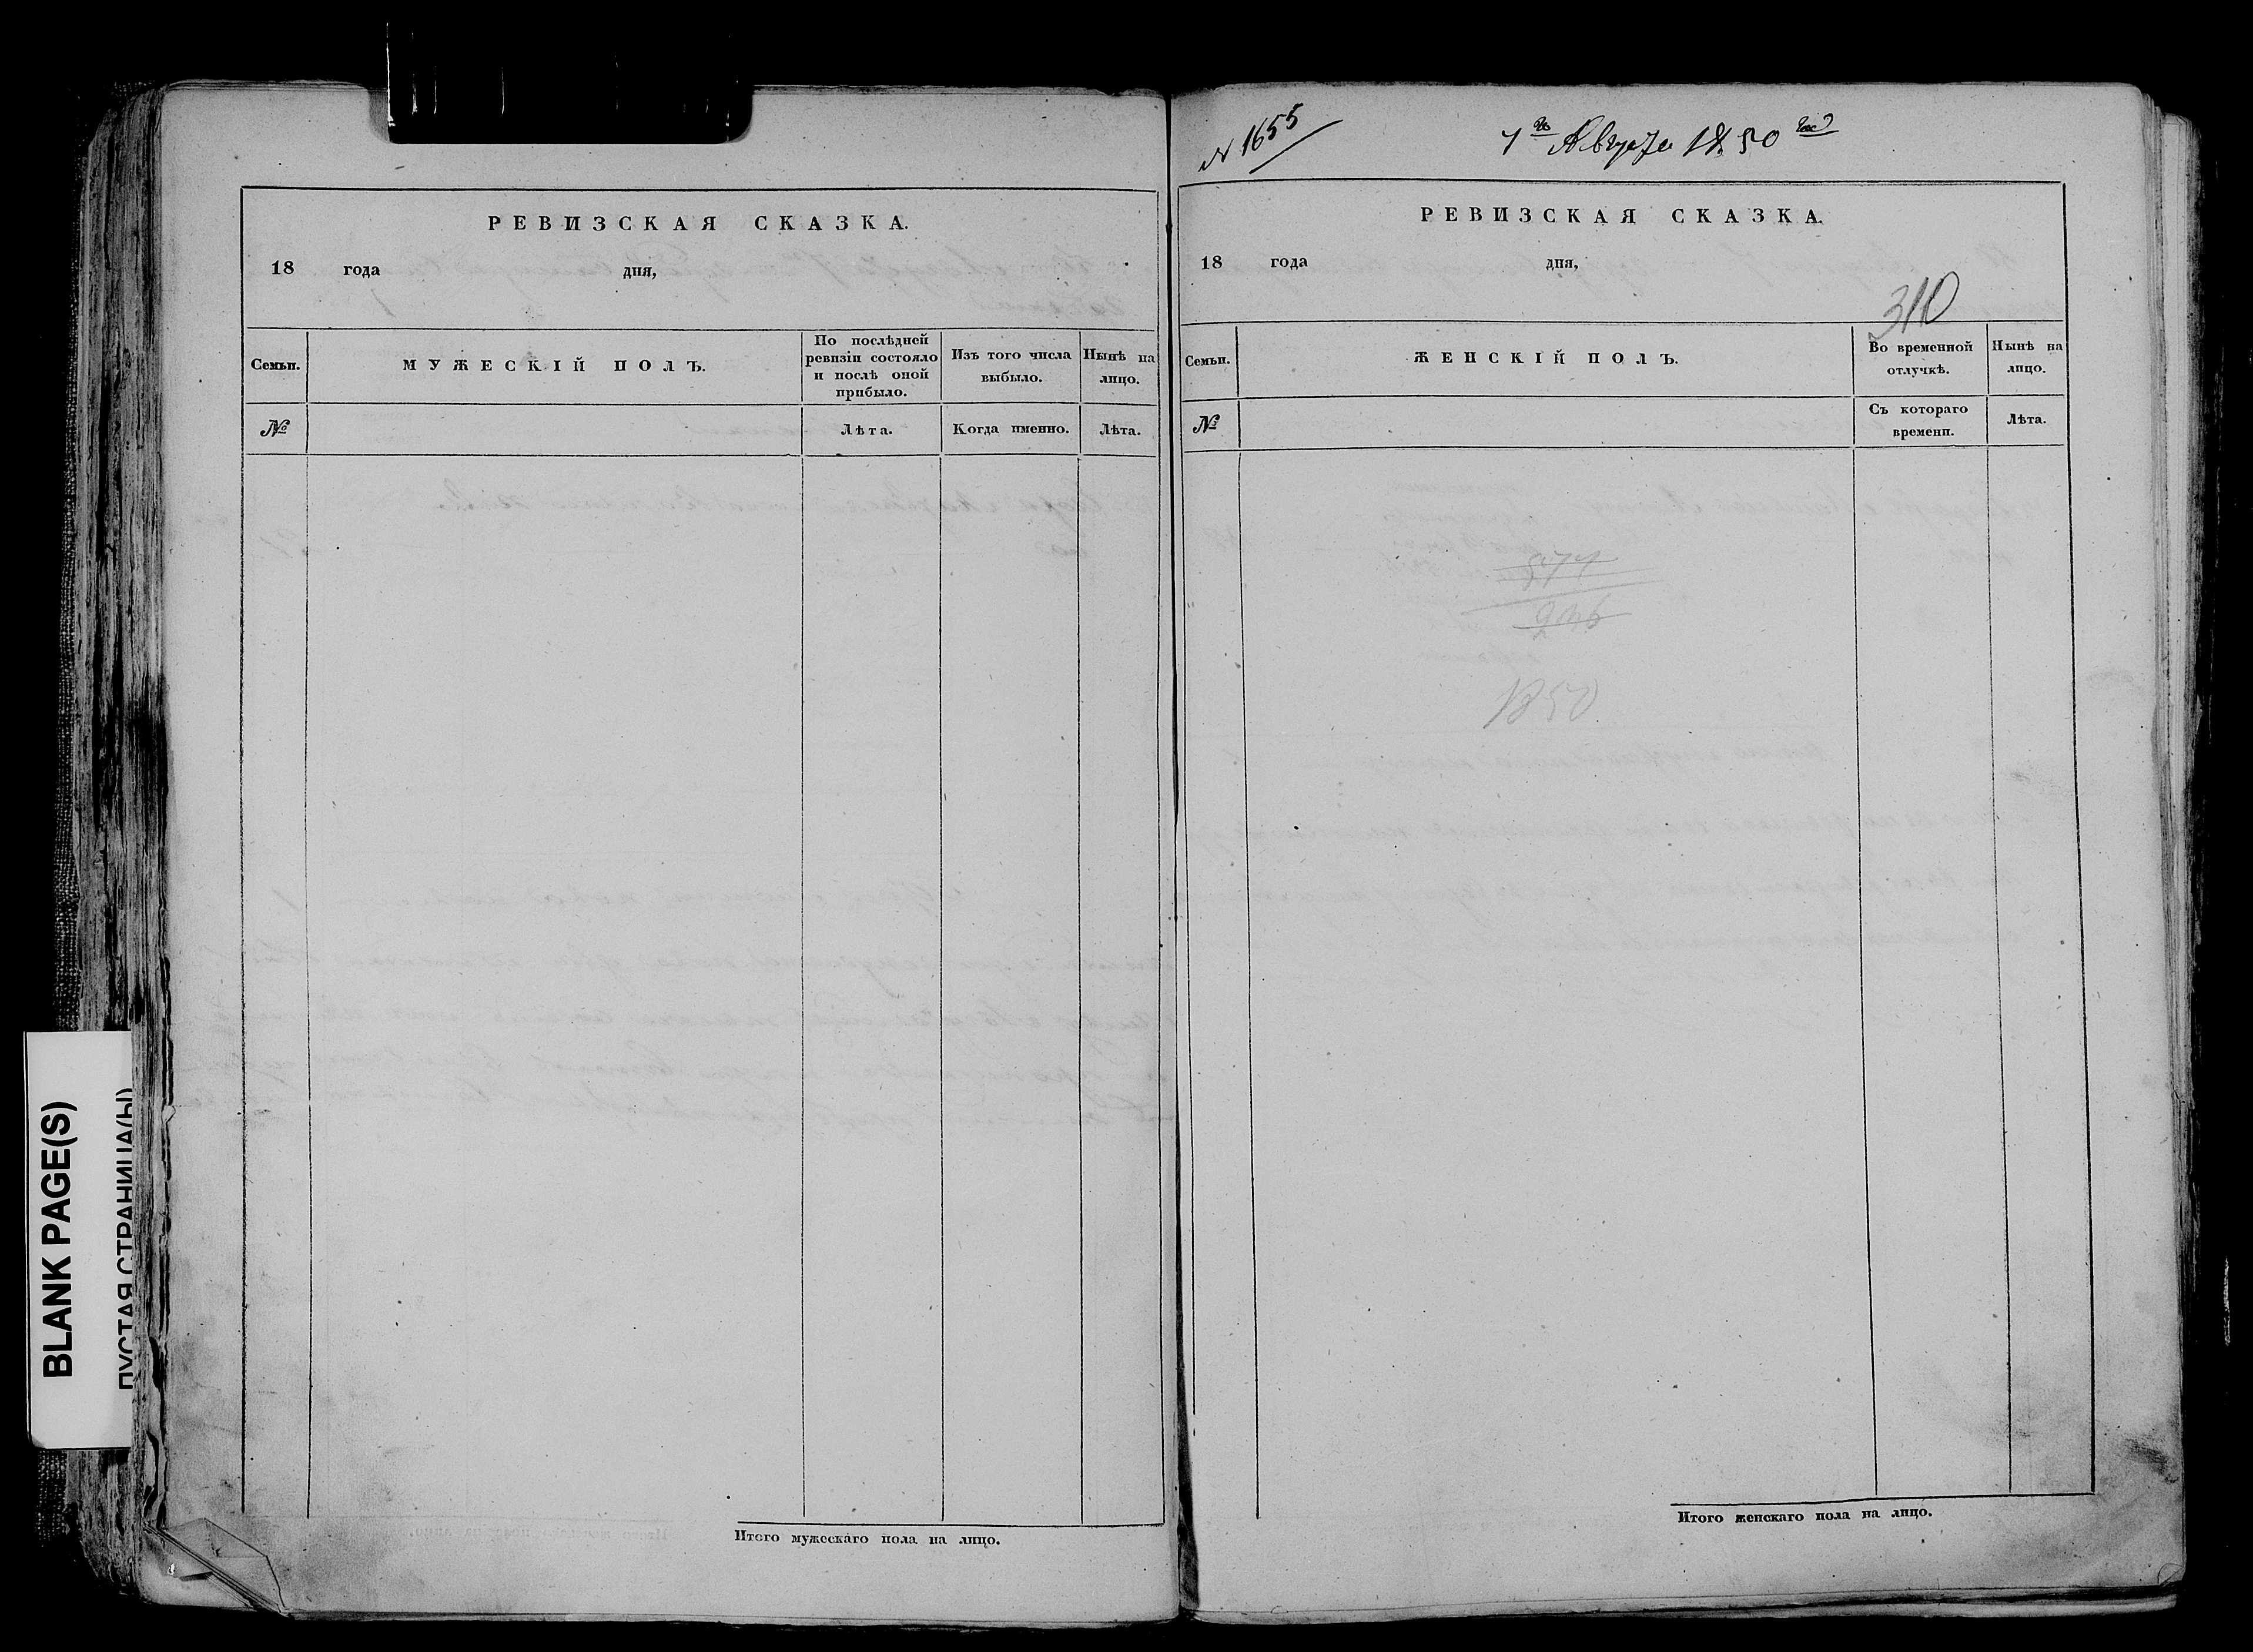 BLANK PAGE(S)
ПУСТАЯ СТРАНИЦА(Ы)
РЕВИЗСКАЯ СКАЗКА.
18 года дня,
Семьи.
МУЖЕСКІЙ ПОЛЪ.
По послѣдней
ревизіи состояло
и послѣ оной
прибыло.
Изъ того числа
выбыло.
Нынѣ на
лицо.
№
Лѣта.
Когда именно.
Лѣта.
Итого мужескаго пола на лицо.
N 1655
7го Августа 1850 года
РЕВИЗСКАЯ СКАЗКА.
18 года дня,
310
Семьи.
ЖЕНСКІЙ ПОЛЪ.
Во временной
отлучкѣ.
Нынѣ на
лицо.
№
Съ котораго
времени.
Лѣта.
1850
Итого женскаго пола на лицо.